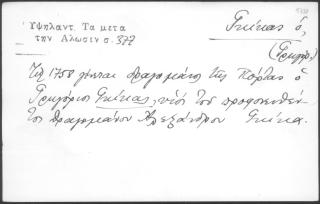 5738
Ὑψηλαντ. Τα μετα
την Αλωσιν σ. 377
Γκίκας ὁ,
(Γρηγόρ.)
Τῷ 1758 γίνεται δραγομάνος τῆς Πόρτας ὁ
Γρηγόριος Γκίκας, υἱός τοῦ προφονευθέν-
τος δραγομάνου Ἀλεξάνδρου Γκίκα.